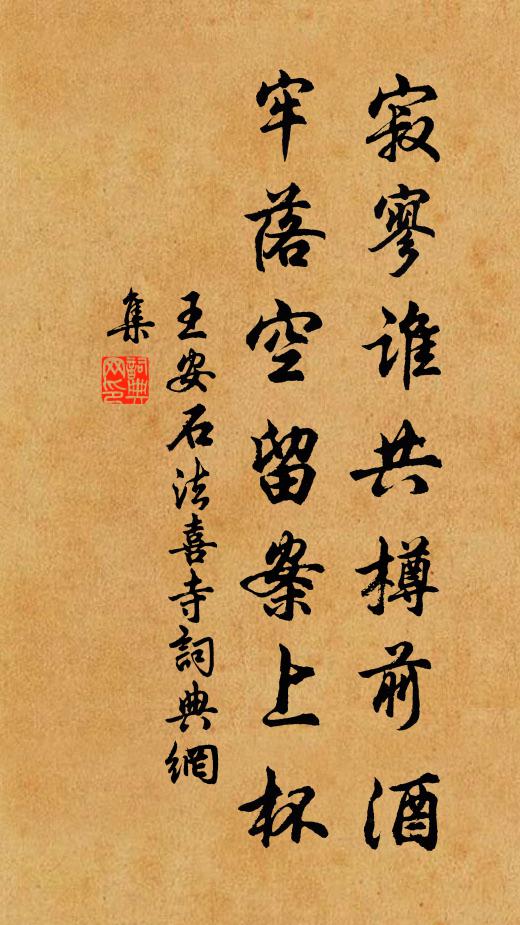 寂寥誰共樽前酒
牢落空留案上杯
王安石法喜寺詞典網
集
詞典
网印